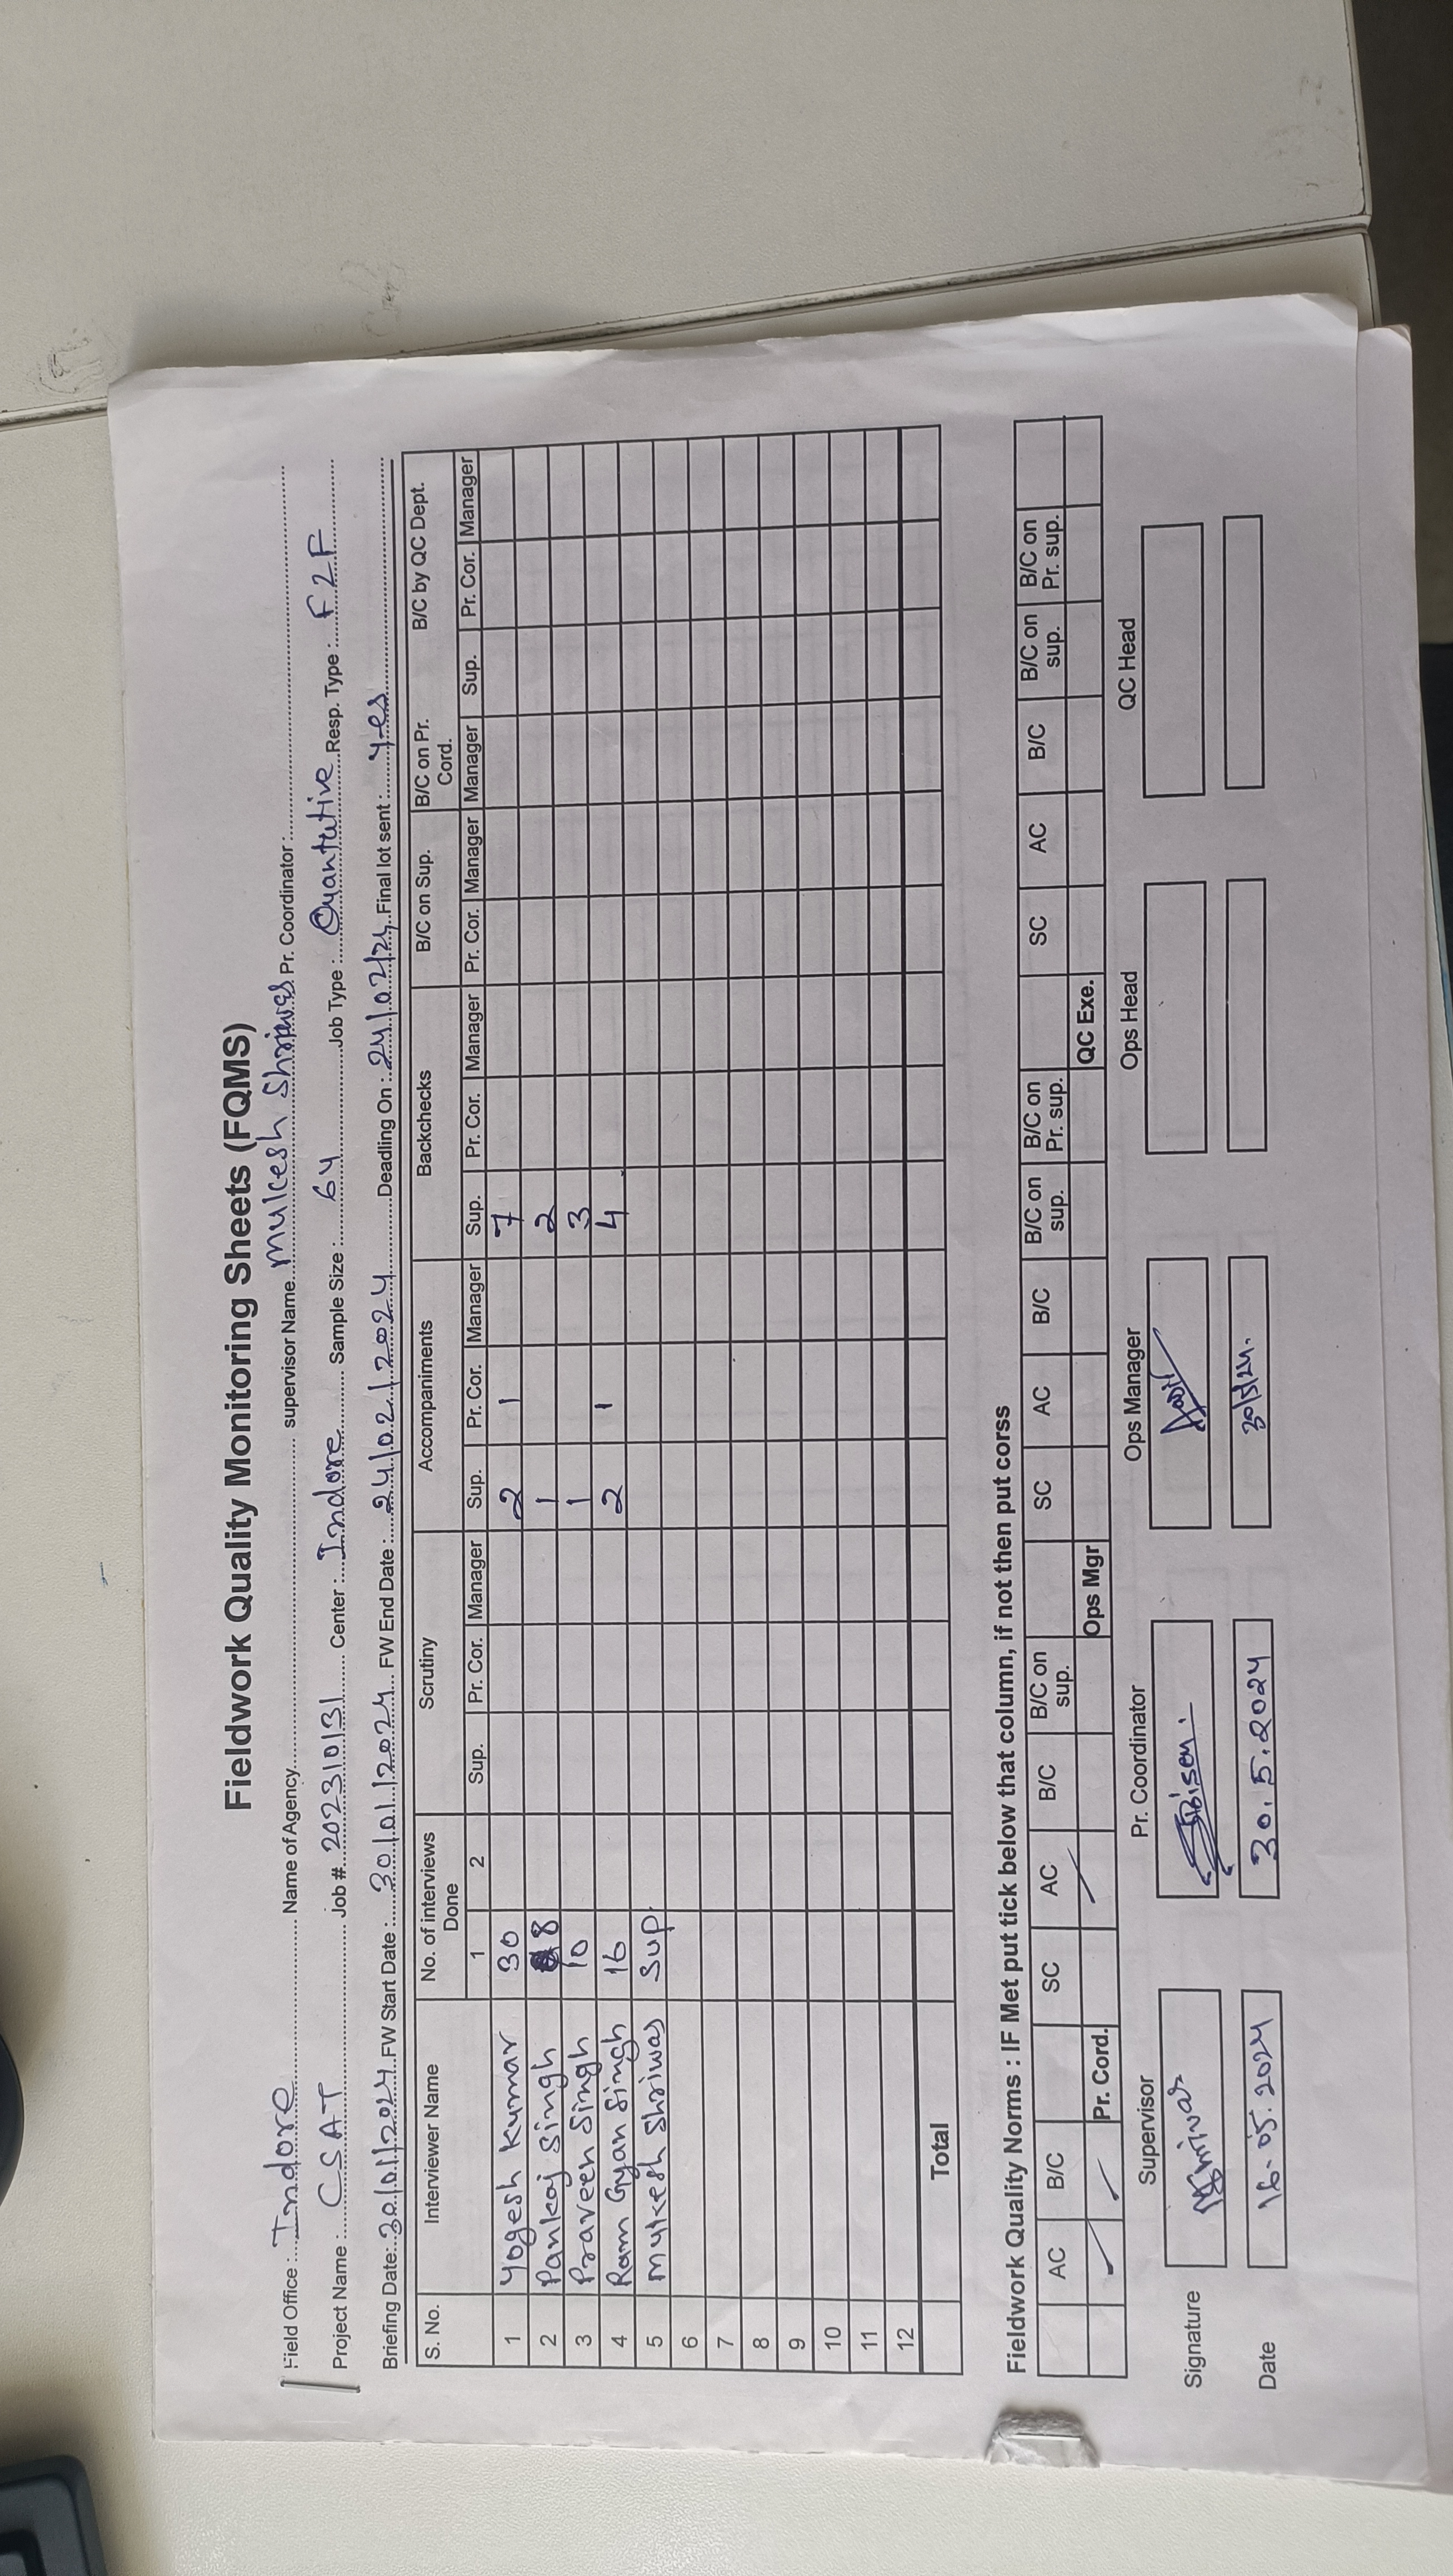 Fieldwork Quality Monitoring Sheets (FQMS)
Field Office : Indore Name of Agency supervisor Name Mukesh Shriwas Pr. Coordinator :
Project Name : CSAT Job # 20231013 Center : Indore Sample Size : 64 Job Type : Quantative Resp. Type : F2F
Briefing Date: 30/01/2024 FW Start Date : 30/01/2024 FW End Date : 24/02/2024 Deadling On : 24/02/24 Final lot sent : Yes
S. No. Interviewer Name No. of interviews Done Scrutiny Accompaniments Backchecks B/C on Sup. B/C on Pr. Cord. B/C by QC Dept.
1 2 Sup. Pr. Cor. Manager Sup. Pr. Cor. Manager Sup. Pr. Cor. Manager Pr. Cor. Manager Manager Sup. Pr. Cor. Manager
1 Yogesh Kumar 30 2 1 7
2 Pankaj Singh 8 1 2
3 Praveen Singh 10 1 3
4 Ram Gyan Singh 16 2 1 4
5 Mukesh Shriwas Sup.
6
7
8
9
10
11
12
Total
Fieldwork Quality Norms : IF Met put tick below that column, if not then put corss
AC B/C SC AC B/C B/C on sup. SC AC B/C B/C on sup. B/C on Pr. sup. SC AC B/C B/C on sup. B/C on Pr. sup.
✓ ✓ Pr. Cord. ✓ Ops Mgr QC Exe.
Supervisor Pr. Coordinator Ops Manager Ops Head QC Head
Signature Shriwas
Date 16.05.2024 30.5.2024 30/5/24.